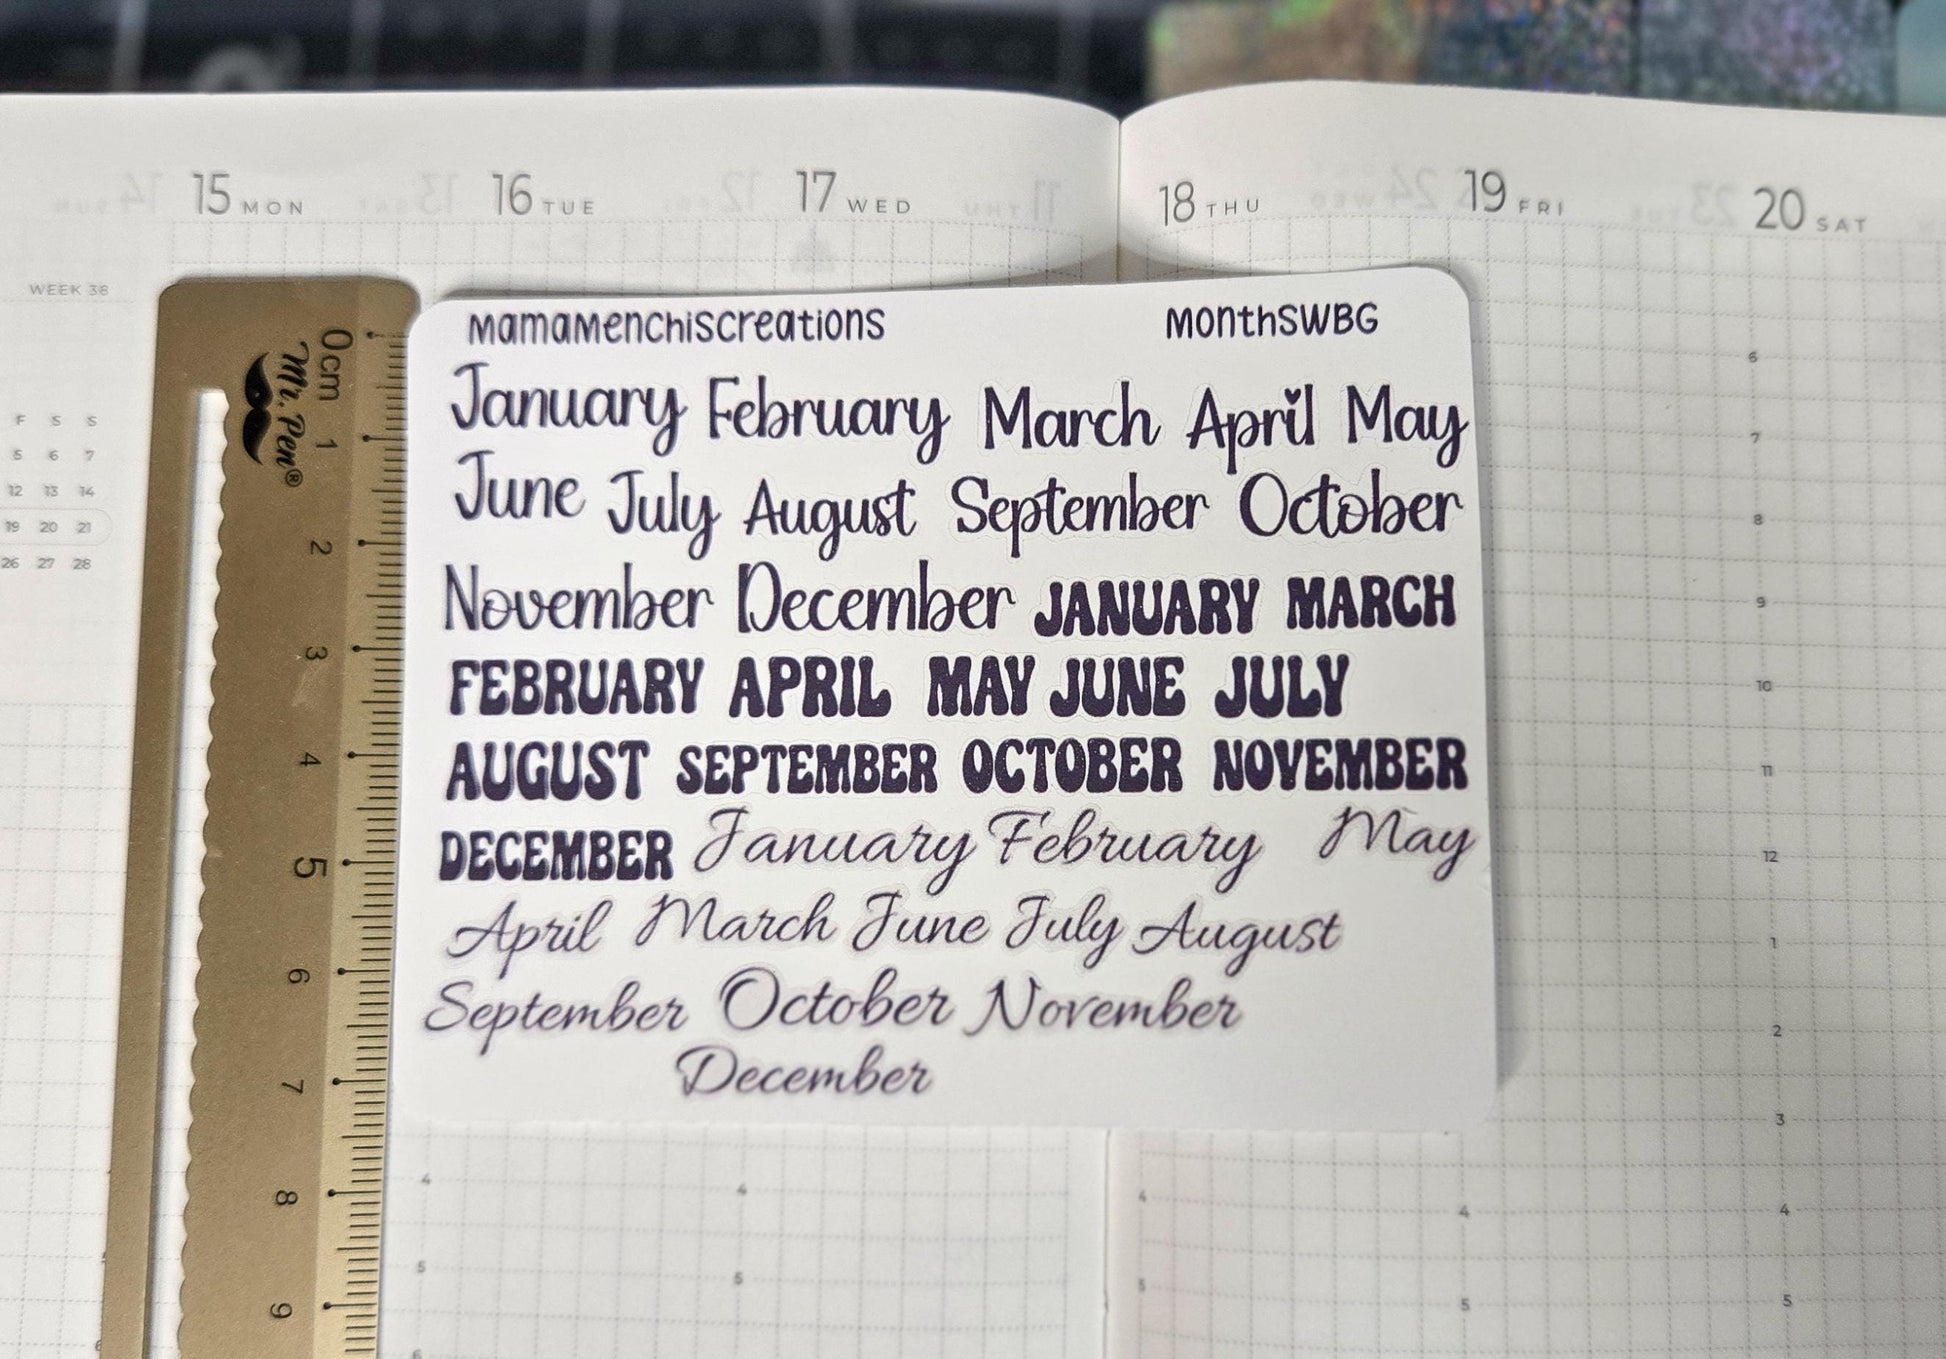 15 MON 16 TUE 17 WED 18 THU 19 FRI 20 SAT
WEEK 38
F S S
5 6 7
12 13 14
19 20 21
26 27 28
0cm 1 2 3 4 5 6 7 8 9
Mr. Pen®
MamaMenchiscreations MonthSWBG
January February March April May
June July August September October
November December JANUARY MARCH
FEBRUARY APRIL MAY JUNE JULY
AUGUST SEPTEMBER OCTOBER NOVEMBER
DECEMBER January February May
April March June July August
September October November
December
6
7
8
9
10
11
12
1
2
3
4 4 4 4 4
5 5 5 5 5
6